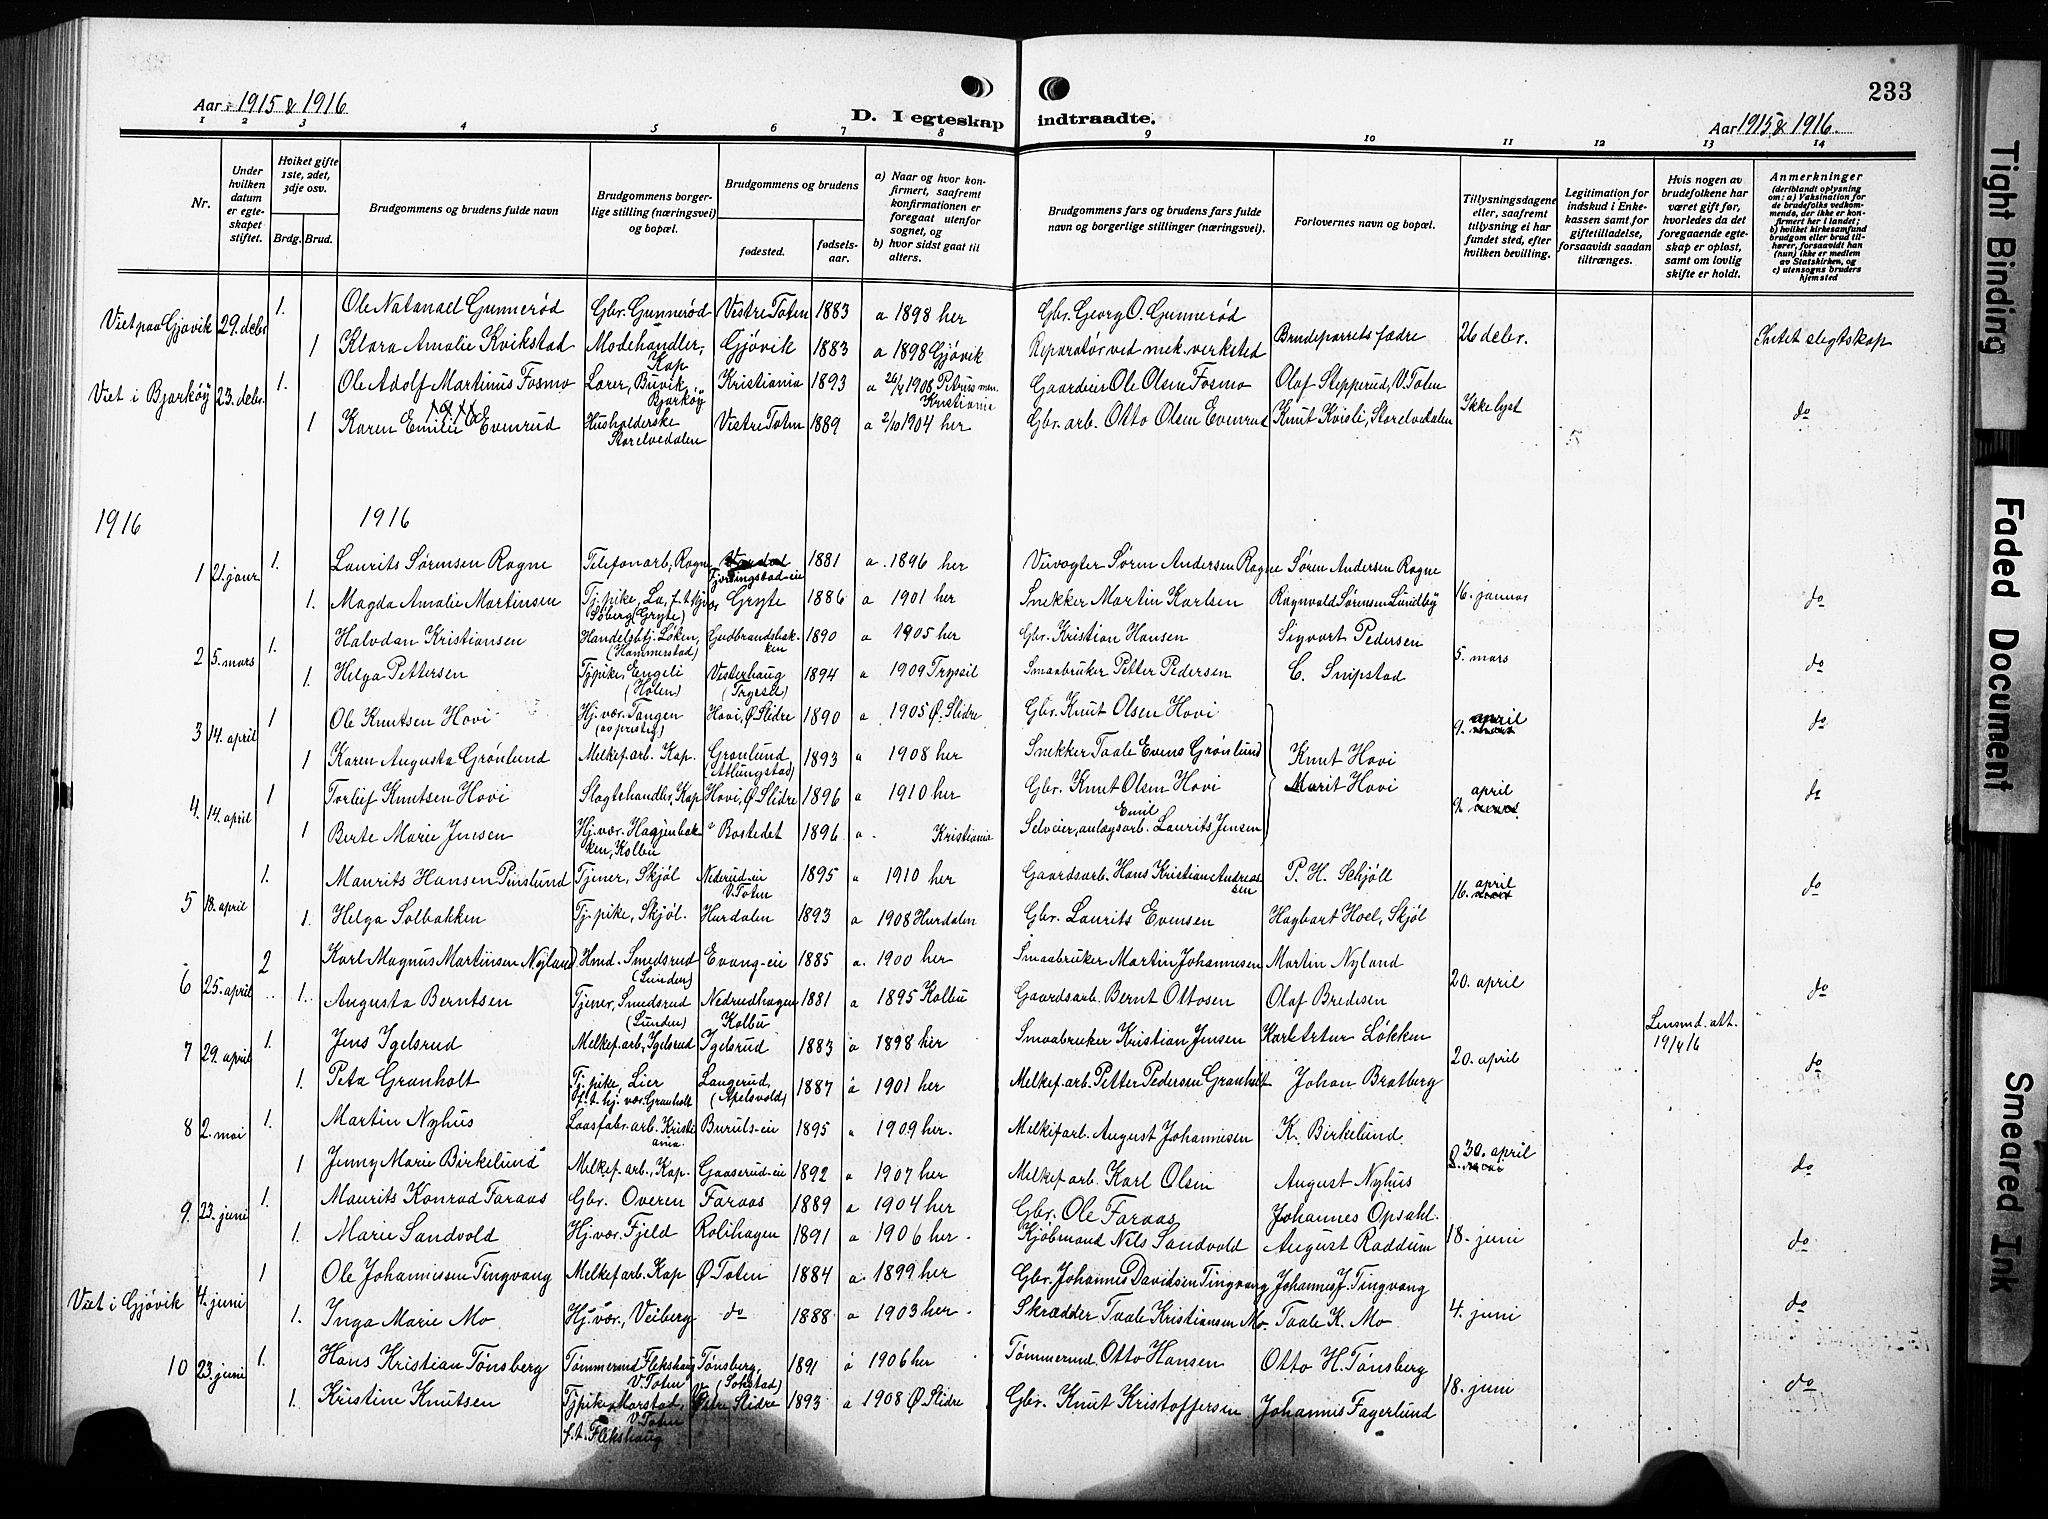 233
Aar 1915 & 1916
D. I egteskap indtraadte.
Aar 1915 & 1916
1 2 3 4 5 6 7 8 9 10 11 12 13 14
Nr.
Under hvilken datum er egteskapet stiftet.
Hviket gifte 1ste, 2det, 3dje osv.
Brdg. Brud.
Brudgommens og brudens fulde navn
Brudgommens borgerlige stilling (næringsvei) og bopæl.
Brudgommens og brudens
fødested.
fødselsaar.
a) Naar og hvor konfirmert, saafremt konfirmationen er foregaat utenfor sognet, og
b) hvor sidst gaat til alters.
Brudgommens fars og brudens fars fulde navn og borgerlige stillinger (næringsvei).
Forlovernes navn og bopæl.
Tillysningsdagene eller, saafremt tillysning ei har fundet sted, efter hvilken bevilling.
Legitimation for indskud i Enkekassen samt for giftetilladelse, forsaavidt saadan tiltrænges.
Hvis nogen av brudefolkene har været gift før, hvorledes da det foregaaende egteskap er opløst, samt om lovlig skifte er holdt.
Anmerkninger
(deriblandt oplysning om: a) Vaksination for de brudefolks vedkommende, der ikke er konfirmert her i landet; b) hvilket kirkesamfund brudgom eller brud tilhører, forsaavidt han (hun) ikke er medlem av Statskirken, og c) utensogns bruders hjemsted
Viet paa Gjøvik 29. debr 1. Ole Natanael Gunnerød Gbr. Gunnerød Vestre Toten 1883 a 1898 her Gbr. Georg O. Gunnerød
1 Klara Amalie Kvikstad Modehandler, Kap Gjøvik 1883 a 1898 Gjøvik Reparatør ved mek. verksted Brudeparrets fædre 26 debr. Intet slegtskap
Viet i Bjarkøy 23. debr. 1. Ole Adolf Martinus Fosmo Lærer, Buvik, Bjarkøy Kristiania 1893 a 26/4 1908 Petrus men. Kristiania Gaardeier Ole Olsen Fosmo Olaf Stepperud, V. Toten
1 Karen Emilie Evenrud Husholderske Storelvedalen Vestre Toten 1889 a 2/10 1904 her Gbr. arb. Otto Olsen Evenrud Knut Kvisli, Storelvedalen Ikke lyst do
1916 1916
1 21. janr 1. Laurits Sørensen Rogne Telefonarb, Rogne Tjorningstad-eie 1881 a. 1896 her Veivogter Søren Andersen Rogne Søren Andersen Rogne
1. Magda Amalie Martinsen Tj.pike, La, f.t. hjv. Søberg (Gryte) Gryte 1886 a 1901 her Snekker Martin Karlsen Ragnvald Sørensen Lundby 16. januar do
2 5. mars 1. Halvdan Kristiansen Handelsbtj. Løken, (Hammerstad) Gudbrandsbakken 1890 a 1905 her Gbr. Kristian Hansen Sigvart Pedersen
1. Helga Pettersen Tj.pike, Engeli (Holen) Vesterhaug (Trysil) 1894 a 1909 Tryssil Smaabruker Petter Pedersen C. Snipstad 5. mars do
3 14. april 1 Ole Knutsen Hovi Hj. vær. Tangen (av prestej) Hovi, Ø. Slidre 1890 a 1905 Ø. Slidre Gbr. Knut Olsen Hovi 9. april do
1 Karen Augusta Grønlund Melkef. arb. Kap. Grønlund (Atlungstad) 1893 " 1908 her Snekker Taale Evens Grønlund Knut Hovi
4. 14. april 1 Torleif Knutsen Hovi Slagtehandler, Kap Hovi, Ø. Slidre 1896 a 1910 her Gbr. Knut Olsen Hovi Marit Hovi 9. april do
1 Berte Marie Jensen Hj. vær. Haajenbakken, Kolbu Bostedet 1896. a. Kristiania Selveier, anlægsarb. Emil Laurits Jensen
5 18. april 1. Maurits Hansen Pinslund Tjener, Skjøl Nederud-eie V. Toten 1895 " 1910 her Gaardsarb. Hans Kristian Andreassen P. H. Schjøll 16. april do
1. Helga Solbakken Tj.pike, Skjøl. Hurdalen 1893 a 1908 Hurdalen Gbr. Laurits Evensen Hagbart Hoel, Skjøl
6 25. april 2 Karl Magnus Martinsen Nyland Hmd. Smedsrud (Lunden) Evang-eie 1885 a. 1900 her Smaabruker Martin Johannesen Martin Nyland
1. Augusta Berntsen Tjener, Smedsrud (Lunden) Nedrudhagen Kolbu 1881 a 1895 Kolbu Gaardsarb. Bernt Ottosen Olaf Bredesen 20. april Lensmd. att. 19/4 16 do
7 29. april 1. Jens Igelsrud Melkef. arb, Igelsrud Igelsrud 1883 a 1898 her Smaabruker Kristian Jensen Karl Artur Løkken
1. Peta Granholt Tj.pike, Lier f.t. hj. vær. Granholt Langerud, (Apelsvold) 1887 a 1901 her Melkef. arb. Petter Pedersen Granholt Johan Bratberg 20. april do
8 2. mai 1. Martin Nyhus Laasfabr. arb. Kristiania. Buruls-eie 1895 " 1909 her. Melkef arb. August Johannesen K. Birkelund
1 Jenny Marie Birkelund Melkef. arb., Kap. Gaaserud-eie 1892 a 1907 her Melkef arb. Karl Olsen August Nyhus 30. april do
9. 23. juni 1. Maurits Konrad Faraas Gbr. Overen Faraas 1889 a 1904 her Gbr. Ole Faraas Johannes Opsahl.
1. Marie Sandvold Hj. vær. Fjeld Rolihagen 1891 a 1906 her. Kjøbmand Nils Sandvold August Raddum 18. juni do
Viet i Gjøvik 4. juni 1 Ole Johannessen Tingvang Melkef arb. Kap Ø. Toten 1884 a. 1899 her Gbr. Johannes Davidsen Tingvang Johannes J. Tingvang
1. Inga Marie Mo Hj. vær., Veiberg do 1888 a 1903 her. Skrædder Taale Kristiansen Mo. Taale K. Mo 4. juni do
10 23. juni 1. Hans Kristian Tønsberg Tømmermd Flekshaug V. Toten Tønsberg, (Sokstad) 1891 a 1906 her Tømmermd Otto Hansen Otto H. Tønsberg
1. Kristine Knutsen Tj.pike, Marstad, V. Toten f.t. Flekshaug Østre Slidre 1893 a 1908 Ø. Slidre Gbr. Knut Kristoffersen Johannes Fagerlund 18. juni do
Tight Binding
Faded Document
Smeared Ink